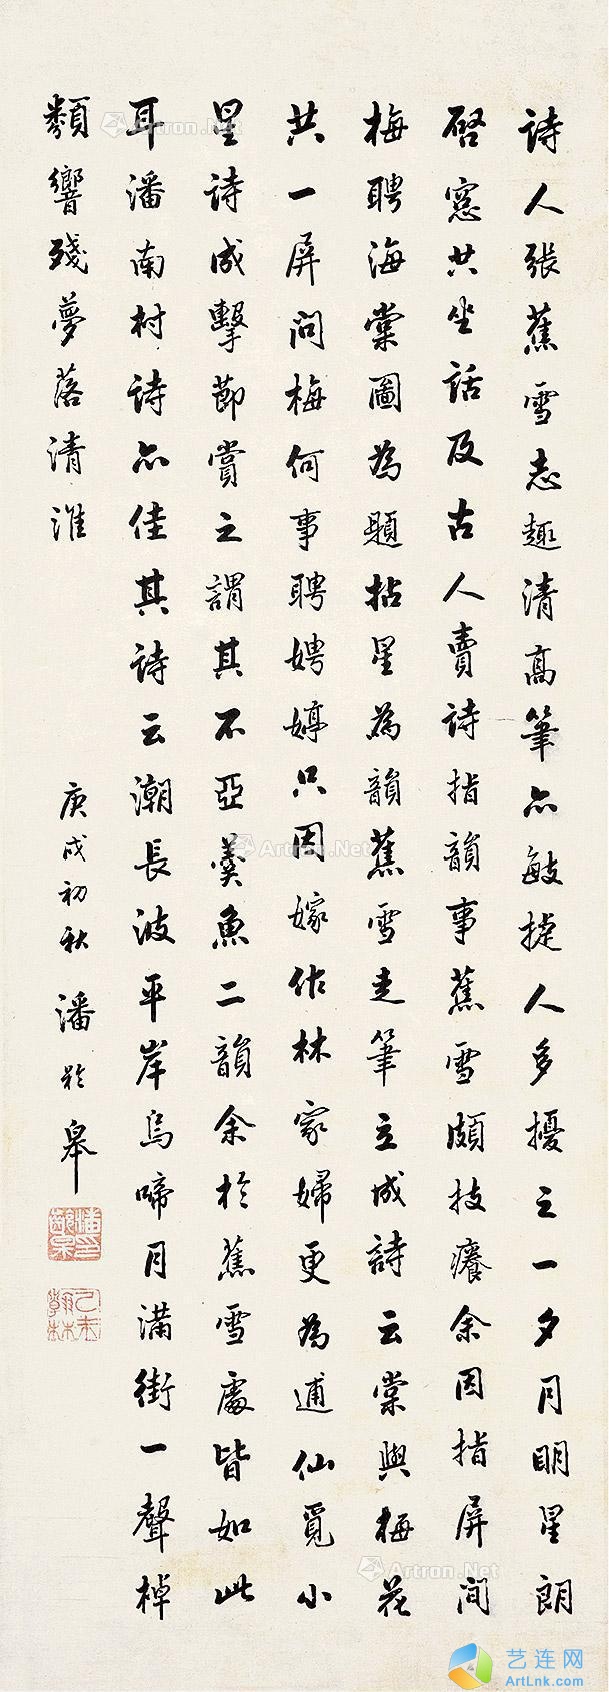 詩人張蕉雪志趣清高筆亦敏捷人多擾之一夕月明星朗
啓窓共坐話及古人賣詩指韻事蕉雪頗技癢余因指屏間
梅聘海棠圖為題拈星為韻蕉雪走筆立成詩云棠與梅花
共一屏問梅何事聘娉婷只因嫁作林家婦更為逋仙覓小
星詩成擊節賞之謂其不亞羹魚二韻余於蕉雪處皆如此
耳潘南村詩亦佳其詩云潮長波平岸烏啼月滿街一聲棹
響殘夢落清淮
庚戌初秋 潘齡皋
潘印齡皋
乙未翰林
Artron.Net
Artron.Net
Artron.Net
Artron.Net
Artron.Net
艺连网
ArtLnk.com